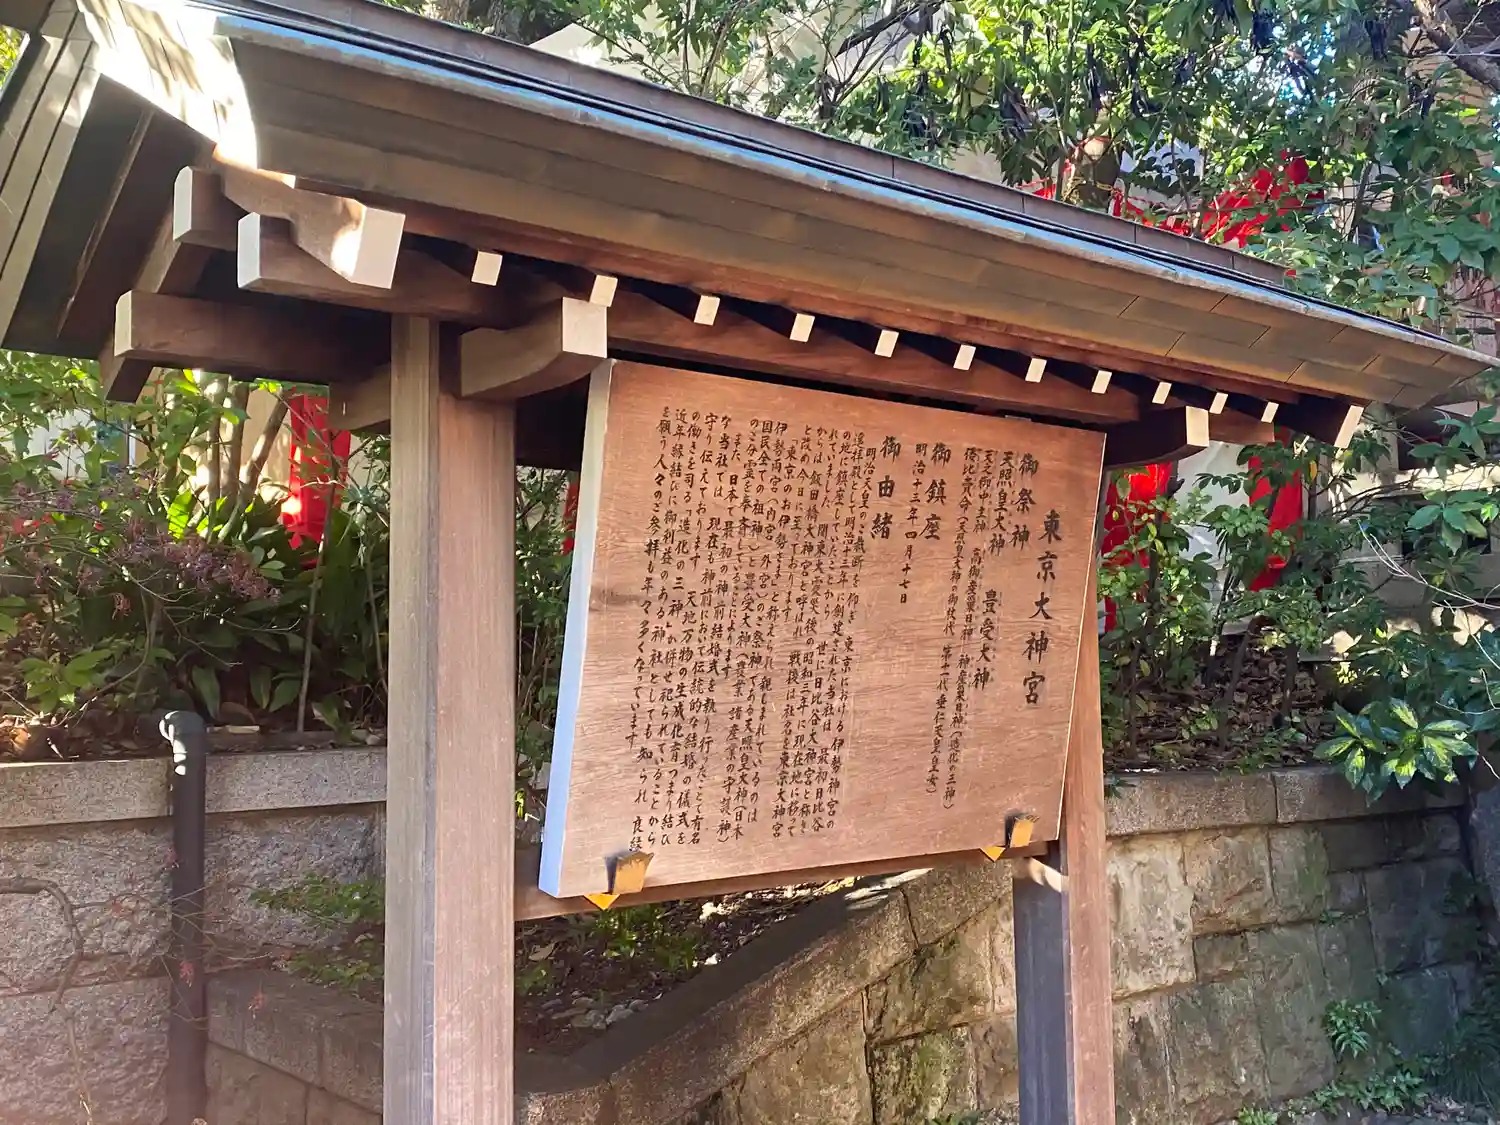 東京大神宮
御祭神
天照皇大神 豊受大神
天之御中主神 高御産巣日神 神産巣日神（造化の三神）
倭比賣命（天照皇大神の御杖代 第十一代垂仁天皇皇女）
御鎮座
明治十三年四月十七日
御由緒
明治天皇のご裁断を仰ぎ 東京における伊勢神宮の
遥拝殿として明治十三年に創建された当社は 最初日比谷
の地に鎮座していたことから 世に日比谷大神宮と称さ
れていましたが 関東大震災後の昭和三年に現在地に移って
からは飯田橋大神宮と呼ばれ 戦後は社名を東京大神宮
と改め今日に至っております
「東京のお伊勢さま」と称えられ親しまれているのは
伊勢両宮（内宮・外宮）のご祭神である天照皇大神（日本
国民全ての祖神）と豊受大神（農業 諸産業の守護神）
のご分霊を奉斎していることによります
また 日本で最初の神前結婚式を執り行ったことで有名
な当社では 現在も神前において伝統的な結婚の儀式を
守り伝えております 天地万物の生成化育つまり結び
の働きを司る「造化の三神」が併せ祀られていることから
近年縁結びに御利益のある神社としても知られ 良縁
を願う人々のご参拝も年々多くなっています